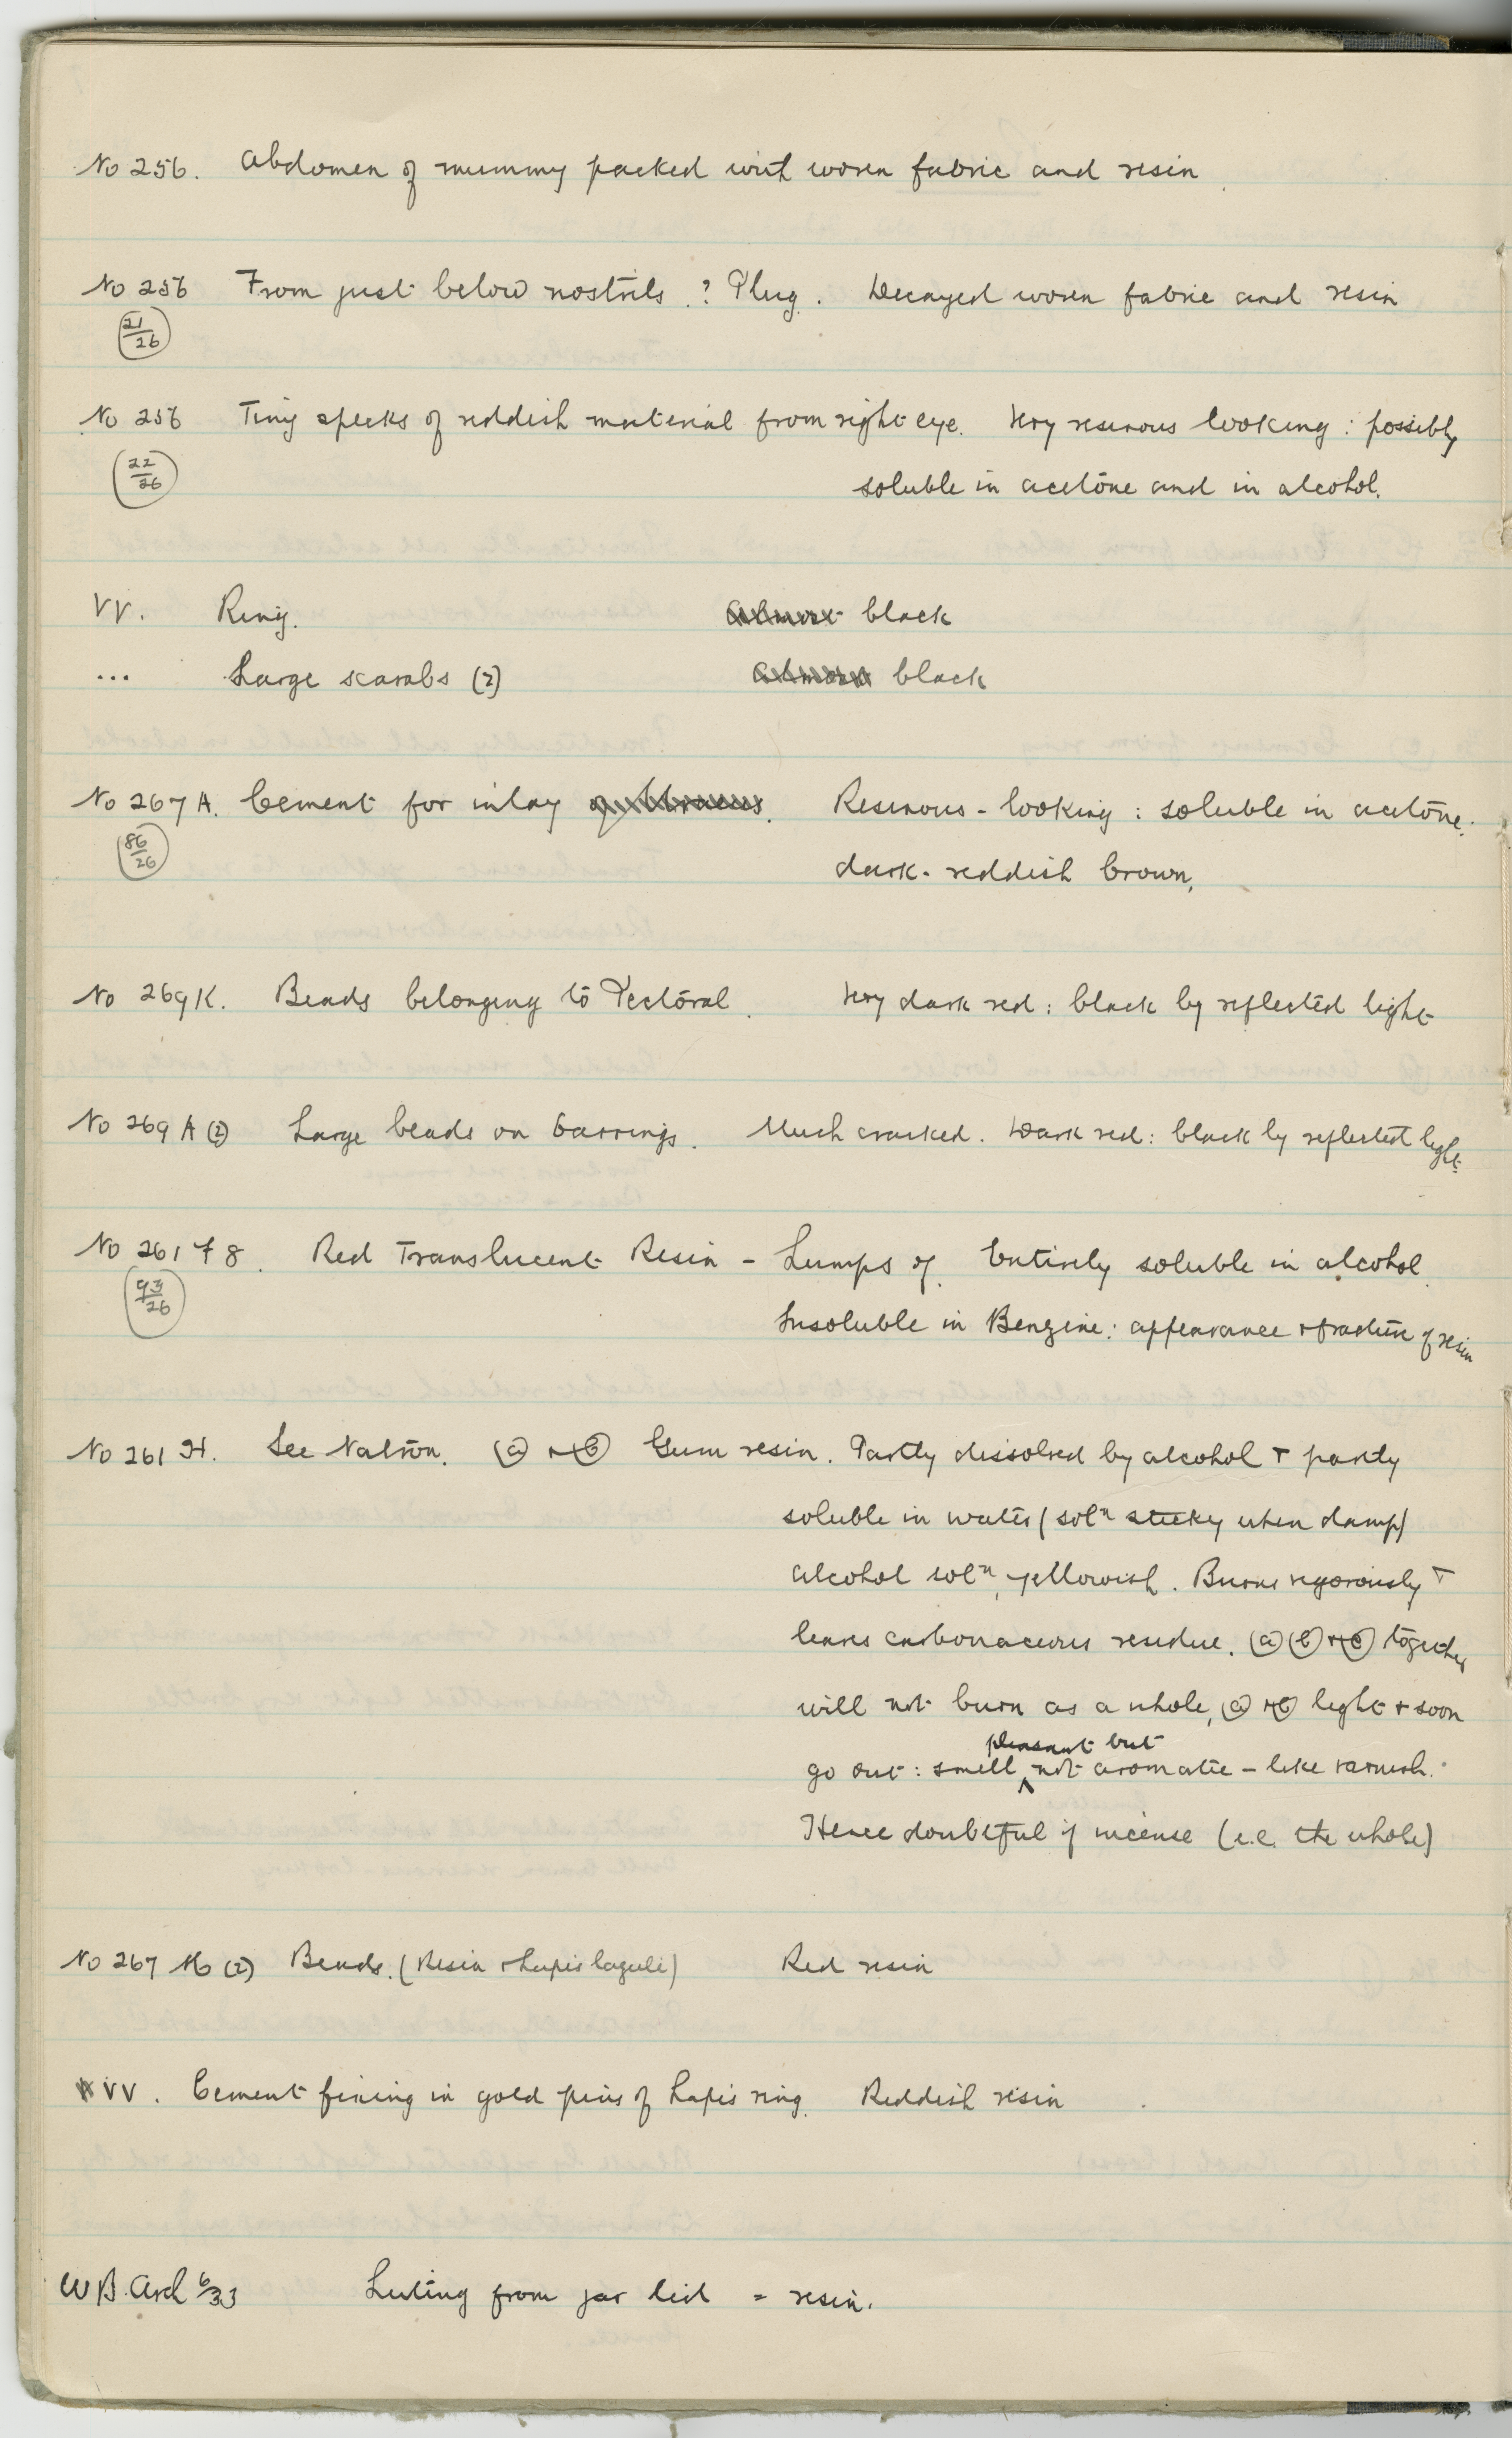 No 256. Abdomen of mummy packed with woven fabric and resin
No 256 From just below nostrils. ? Plug. Decayed woven fabric and resin
21/26
No 256 Tiny specks of reddish material from right eye. Very resinous looking : possibly
22/26
soluble in acetone and in alcohol.
VV. Ring. almost black
... Large scarabs (2) almost black
No 267 A. Cement for inlay Resinous - looking : soluble in acetone.
86/26
dark. reddish brown.
No 269 K. Beads belonging to Pectoral. Very dark red : black by reflected light
No 269 A (2) Large beads on Earrings. Much cracked. Dark red : black by reflected light
No 261 F 8. Red Translucent Resin - Lumps of. Entirely soluble in alcohol.
93/26
Insoluble in Benzine : appearance + fracture of resin
No 261 H. See Natron. (a) + (b) Gum resin. Partly dissolved by alcohol + partly
soluble in water (soln sticky when damp)
alcohol soln, yellowish. Burns vigorously +
leaves carbonaceous residue. (a) (b) + (c) together
will not burn as a whole, (a) + (b) light + soon
pleasant but
go out : smell not aromatic - like varnish.
Hence doubtful if incense (i.e. the whole)
No 267 M (2) Beads. (Resin + Lapis lazuli) Red resin
VV. Cement fixing in gold pins of Lapis ring. Reddish resin
W.B. Arch 6/33 Luting from jar lid = resin.